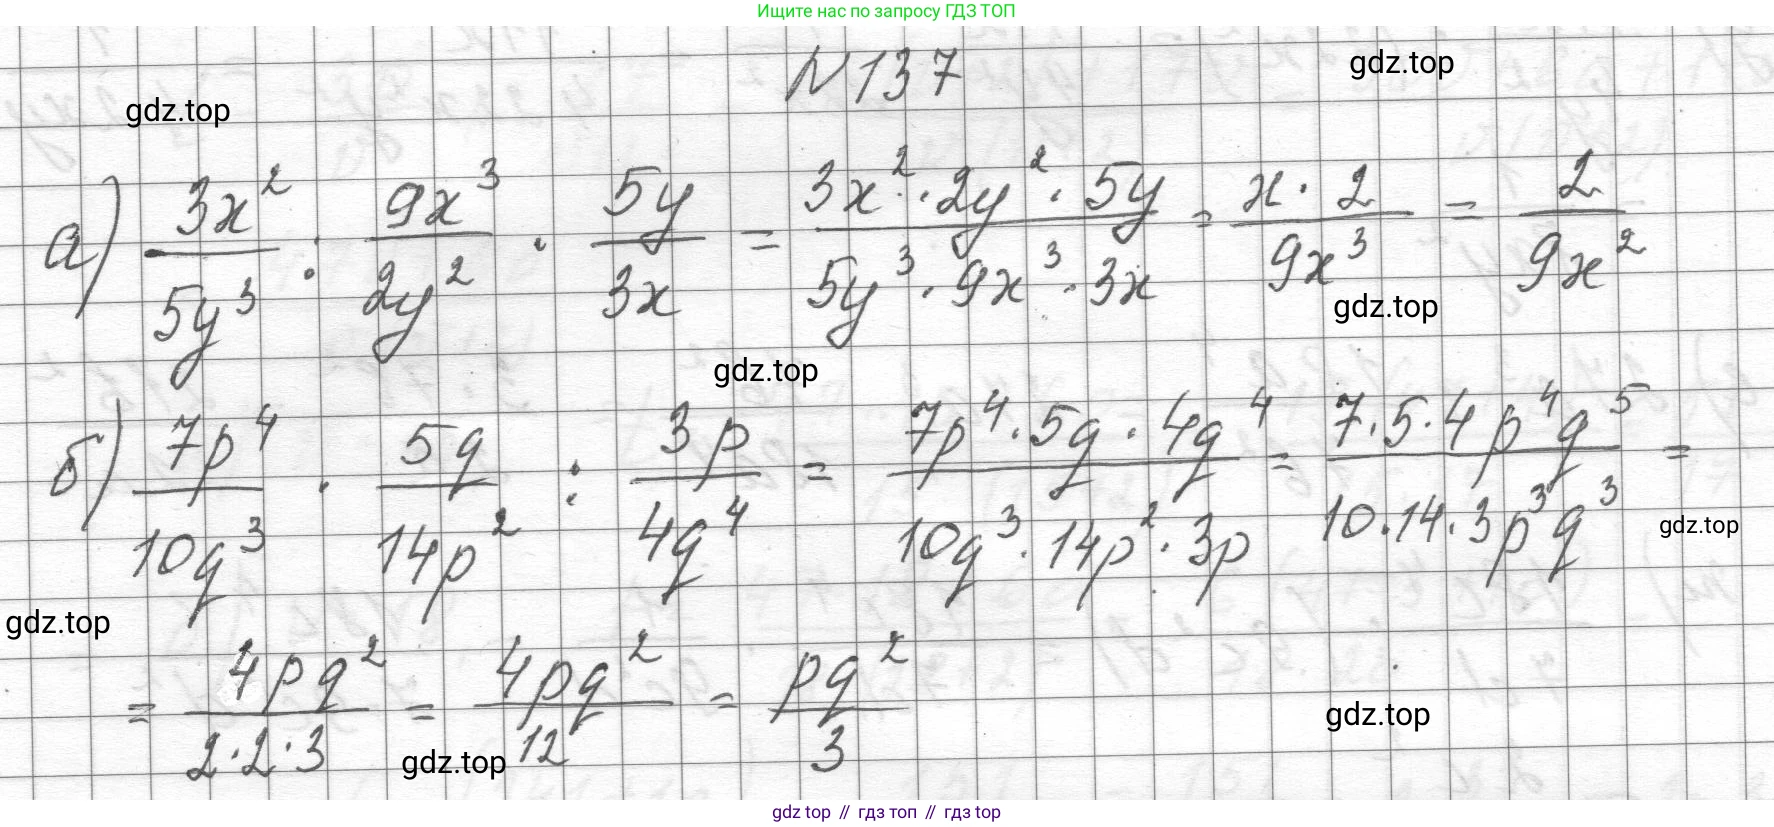 Ищите нас по запросу ГДЗ ТОП
N 137
gdz.top
gdz.top
а) 3x²/5y³ : 9x³/2y² · 5y/3x = 3x²·2y²·5y/5y³·9x³·3x = x·2/9x³ = 2/9x²
gdz.top
gdz.top
б) 7p⁴/10q³ · 5q/14p² : 3p/4q⁴ = 7p⁴·5q·4q⁴/10q³·14p²·3p = 7·5·4p⁴q⁵/10·14·3p³q³ =
gdz.top
gdz.top
= 4pq²/2·2·3 = 4pq²/12 = pq²/3
gdz.top
gdz.top
gdz top // гдз топ // гдз top